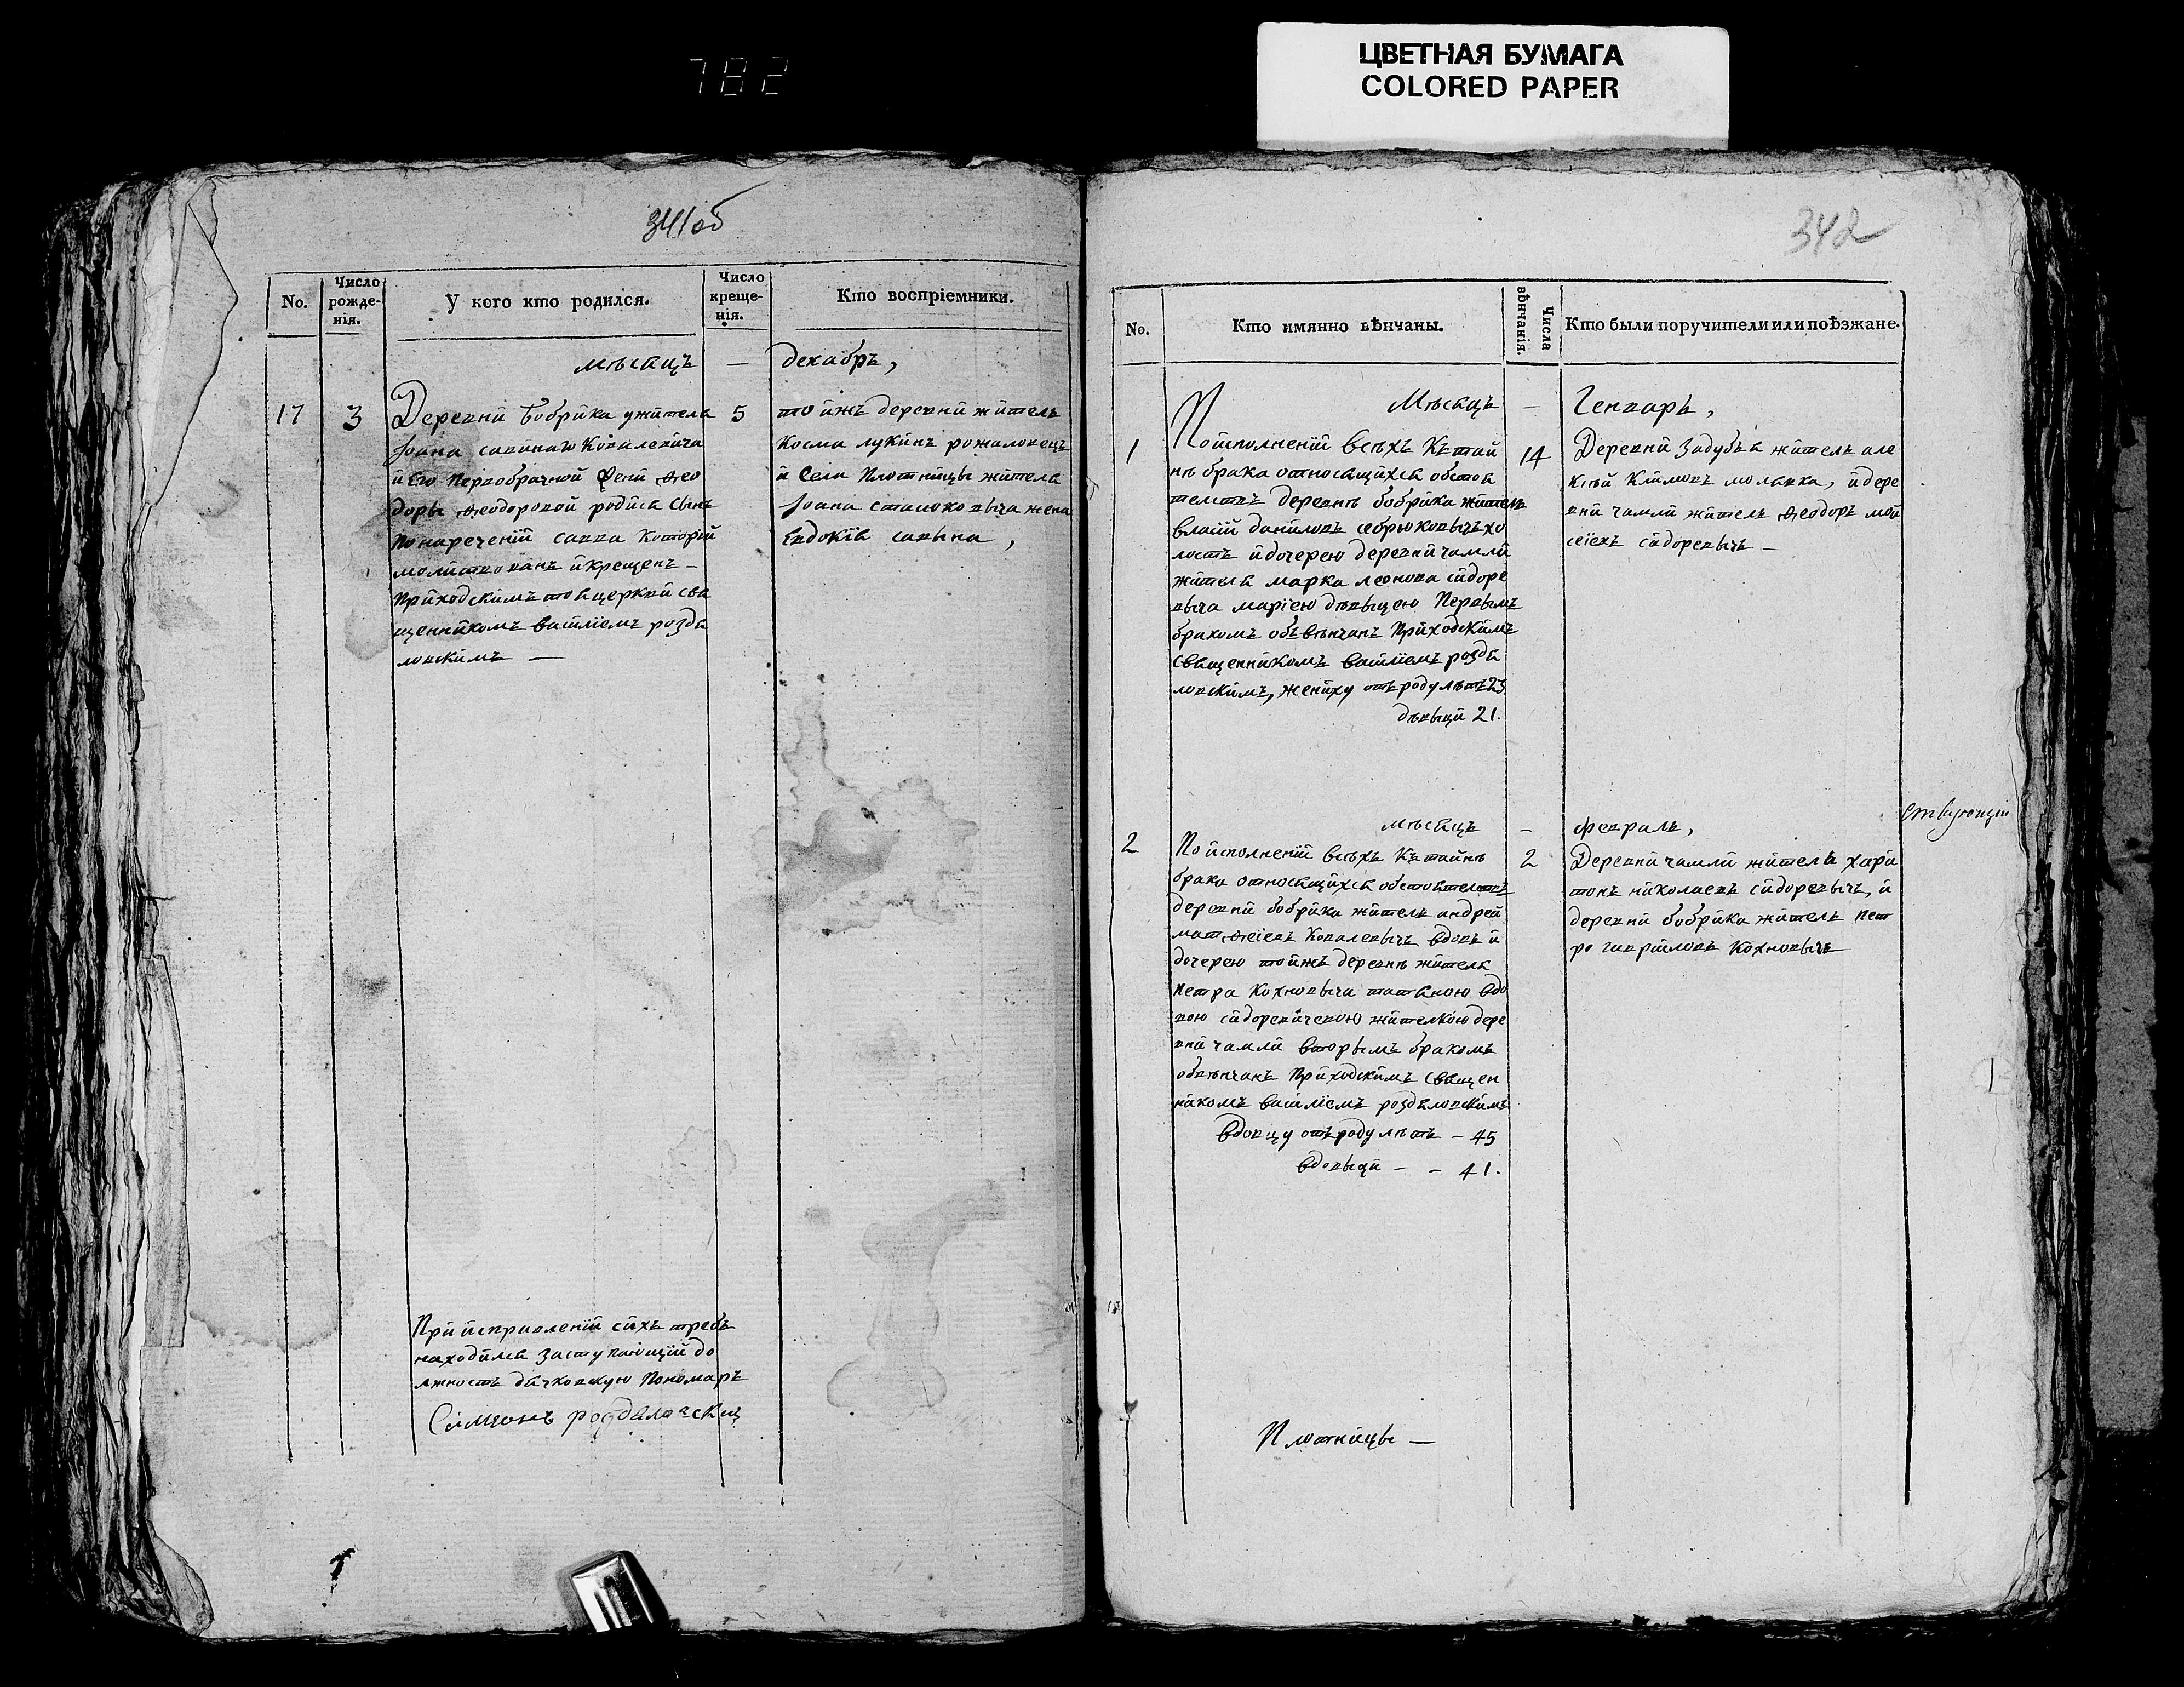 782
ЦВЕТНАЯ БУМАГА
COLORED PAPER
341об
No.
Число рожде-нія.
У кого кто родился.
Число креще-нія.
Кто воспріемники.
мѣсяцъ — декабръ,
17
3
Деревни Бобрика ужителя
Іоана савина Ковалевича
и Его Первобрачной Жени Ѳео
доры Ѳеодоровой родися Сынъ
По наречений савва Которій
молитвованъ и крещенъ —
Приходскимъ тоя церкви свя
щенникомъ василіемъ роздя
ловскимъ —
5
тоижъ деревни житель
косма лукинъ рожаловецъ
и Села Плотницы жителя
Іоана статковыча жена
Евдокія савына,
При исправленій сихъ требъ
находился заступающій до
лжность дячковскую Пономаръ
Симеонъ роздяловскій
342
No.
Кто имянно вѣнчаны.
Числа вѣнчанія.
Кто были поручители или поѣзжане.
Мѣсяцъ — Генваръ,
1
По исполненій всѣхъ Къ тай
нѣ брака относящихся обстоя
телствъ деревнѣ бобрика житель
власій даниловъ себрюковычъ хо
лостъ и дочерею деревни чамли
жителя марка леонова сидоре
выча маріею дѣвыцею Первымъ
бракомъ объвѣнчанъ Приходскимъ
Священникомъ василіемъ роздя
ловскимъ, жениху отъ роду лѣтъ 23
дѣвыци 21.
14
Деревни Задубья житель але
ксѣй Климовъ молявка, и дере
вни чамли житель Ѳеодоръ мои
сеіевъ сидоревычъ —
мѣсяцъ — февраль,
ствующій
2
По исполненій всѣхъ Къ тайнѣ
брака относящихся обстоятелствъ
деревни бобрика житель андрей
матѳеіевъ Ковалевычъ вдовъ и
дочерею тоижъ деревнѣ жителя
Петра Кохновыча татяною вдо
вою сидоревичевою жителкою дере
вни чамли вторымъ бракомъ
обвѣнчанъ Приходскимъ Священ
никомъ василіемъ роздяловскимъ
вдовцу отъ роду лѣтъ — 45
вдовыци — — 41.
2
Деревни чамли житель хари
тонъ николаевъ сидоревычъ, и
деревни бобрика житель Пет
ро гавриловъ Кохновычъ
Плотницы —